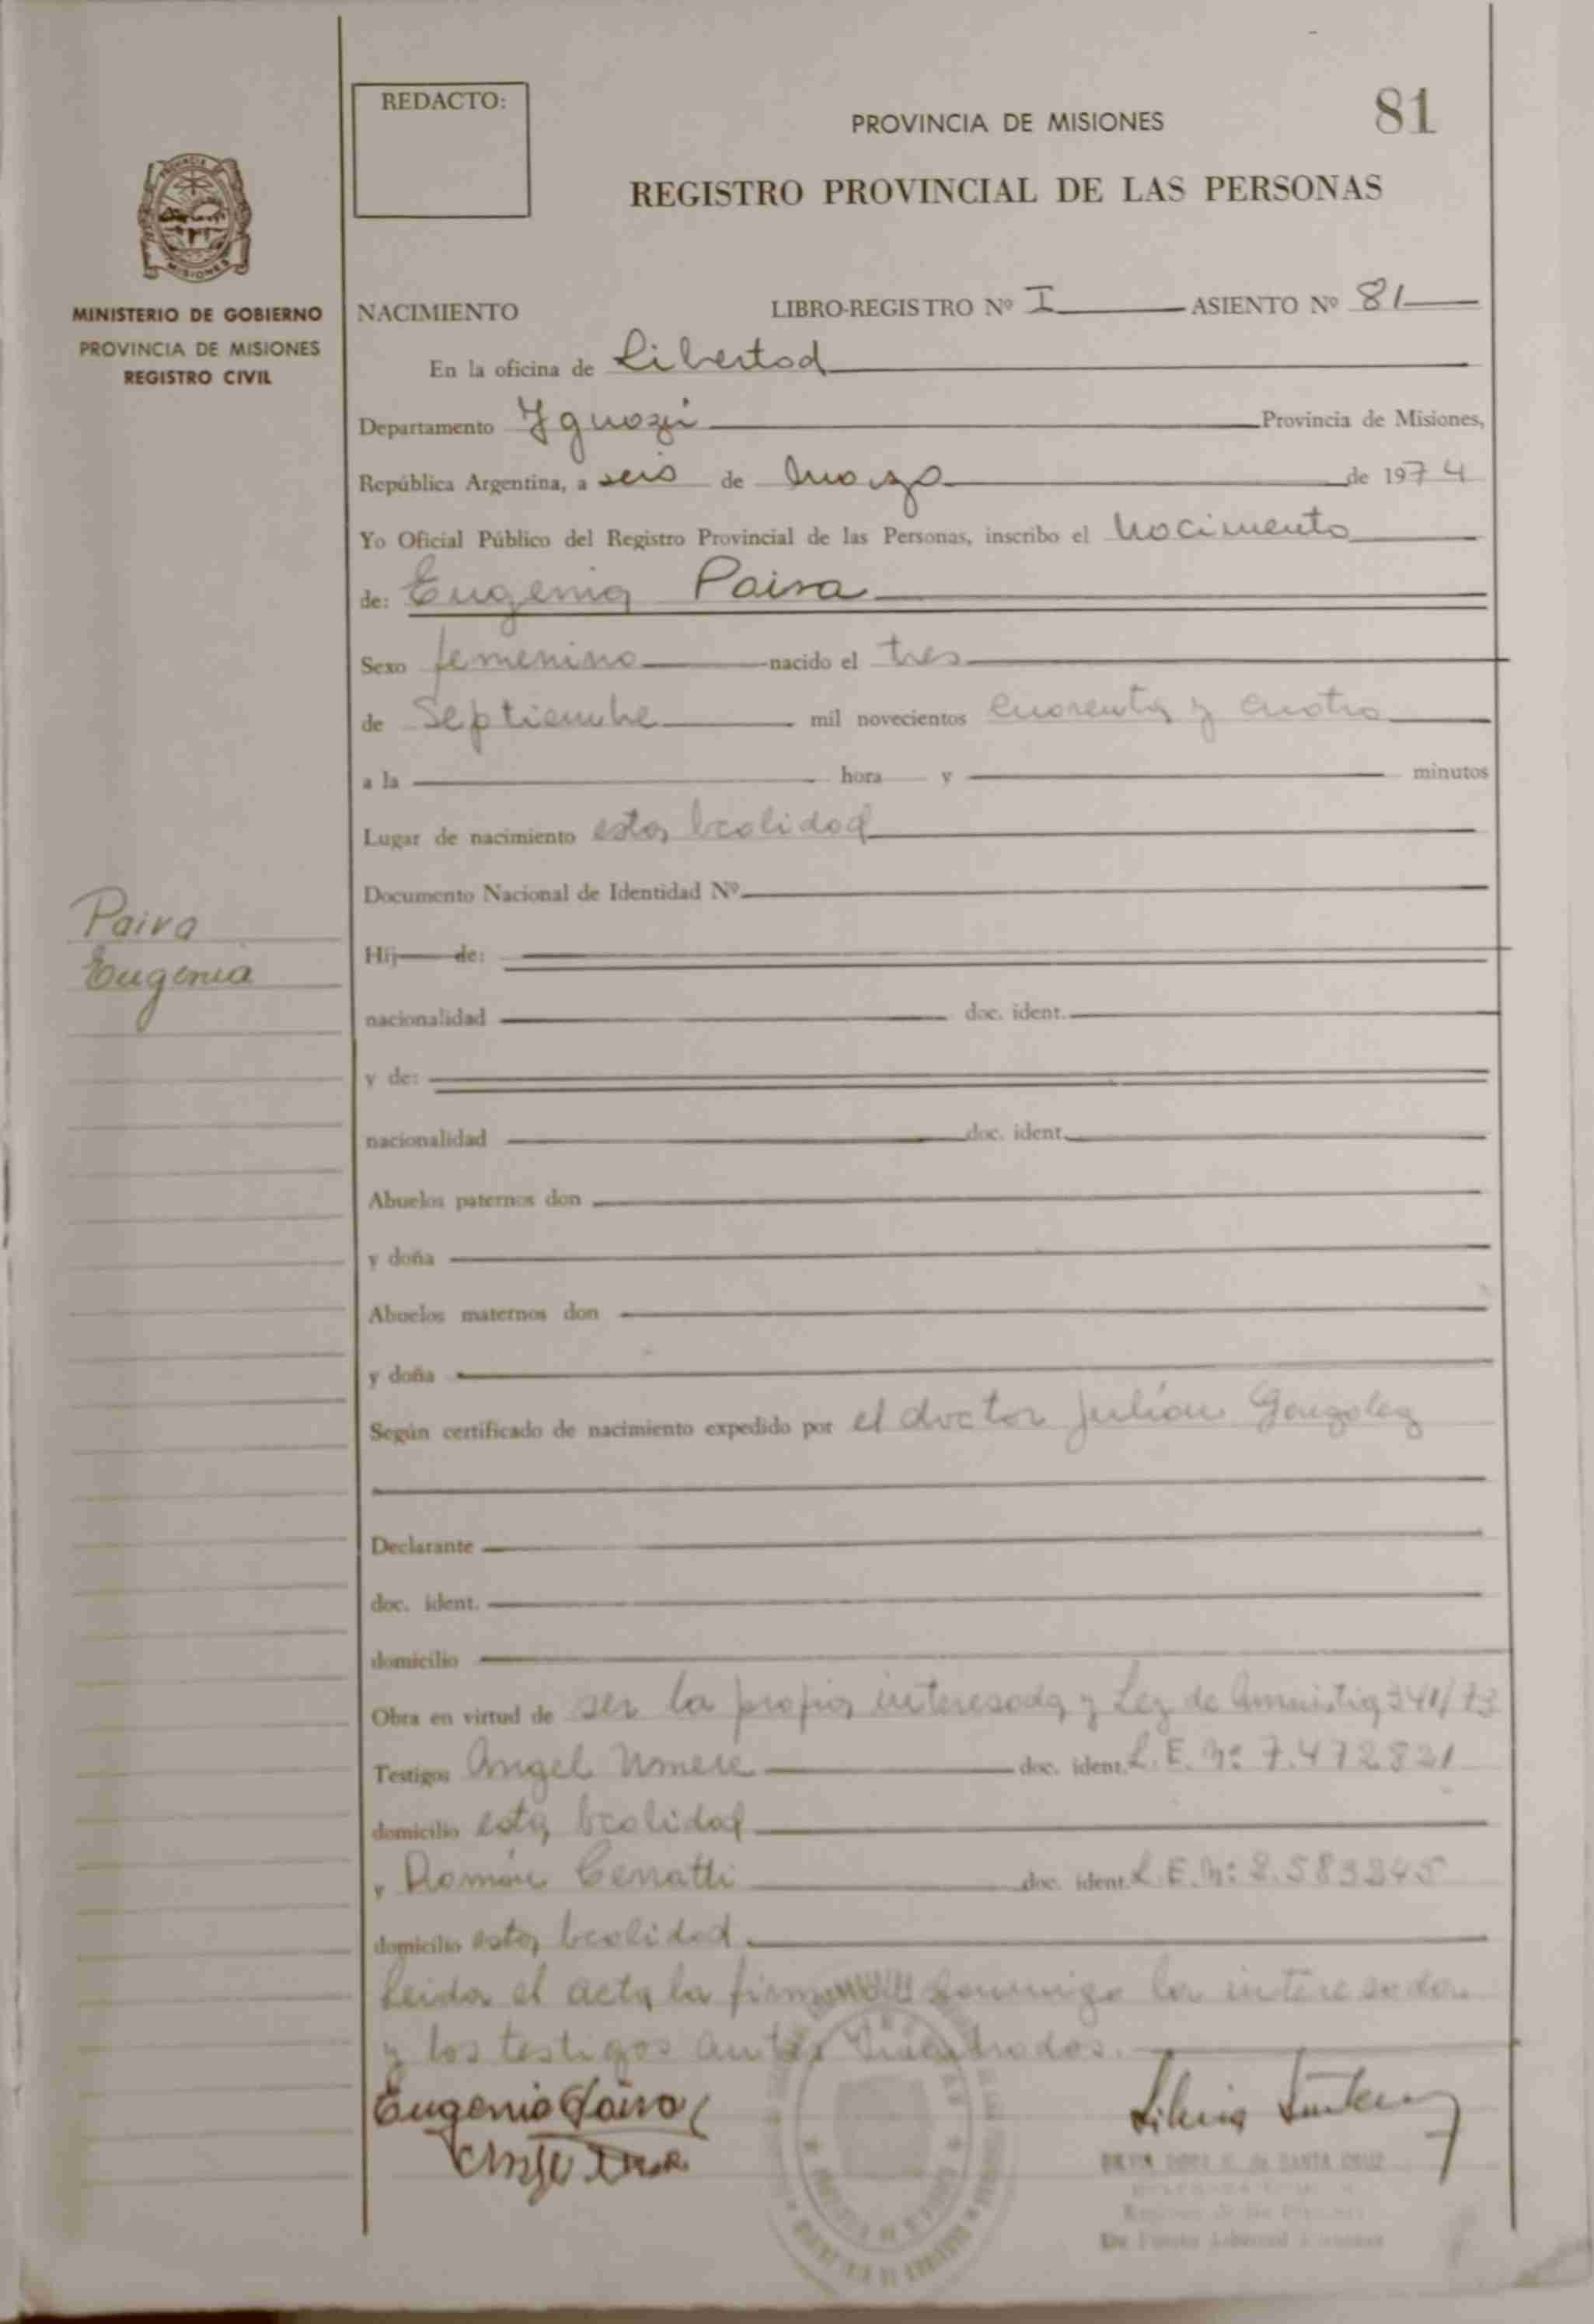 REDACTO:
PROVINCIA DE MISIONES
81
REGISTRO PROVINCIAL DE LAS PERSONAS
PROVINCIA
MISIONES
MINISTERIO DE GOBIERNO
PROVINCIA DE MISIONES
REGISTRO CIVIL
NACIMIENTO LIBRO-REGISTRO Nº I ASIENTO Nº 81
En la oficina de Libertad
Departamento Yguazú Provincia de Misiones,
República Argentina, a seis de marzo de 1974
Yo Oficial Público del Registro Provincial de las Personas, inscribo el nacimiento
de: Eugenia Paiva
Sexo femenino nacido el tres
de Septiembre mil novecientos cuarenta y cuatro
a la hora y minutos
Lugar de nacimiento esta localidad
Documento Nacional de Identidad Nº
Paiva
Eugenia
Hij de:
nacionalidad doc. ident.
y de:
nacionalidad doc. ident.
Abuelos paternos don
y doña
Abuelos maternos don
y doña
Según certificado de nacimiento expedido por el doctor Julián Gonzalez
Declarante
doc. ident.
domicilio
Obra en virtud de ser la propia interesada y Ley de Amnistia 341/73
Testigos Angel doc. ident. L.E. Nº 7.472821
domicilio esta localidad
y Román doc. ident. L.E. Nº
domicilio esta localidad
Leida el acta la firman conmigo la interesada
y los testigos antes
Eugenia Paiva
DE SANTA CRUZ